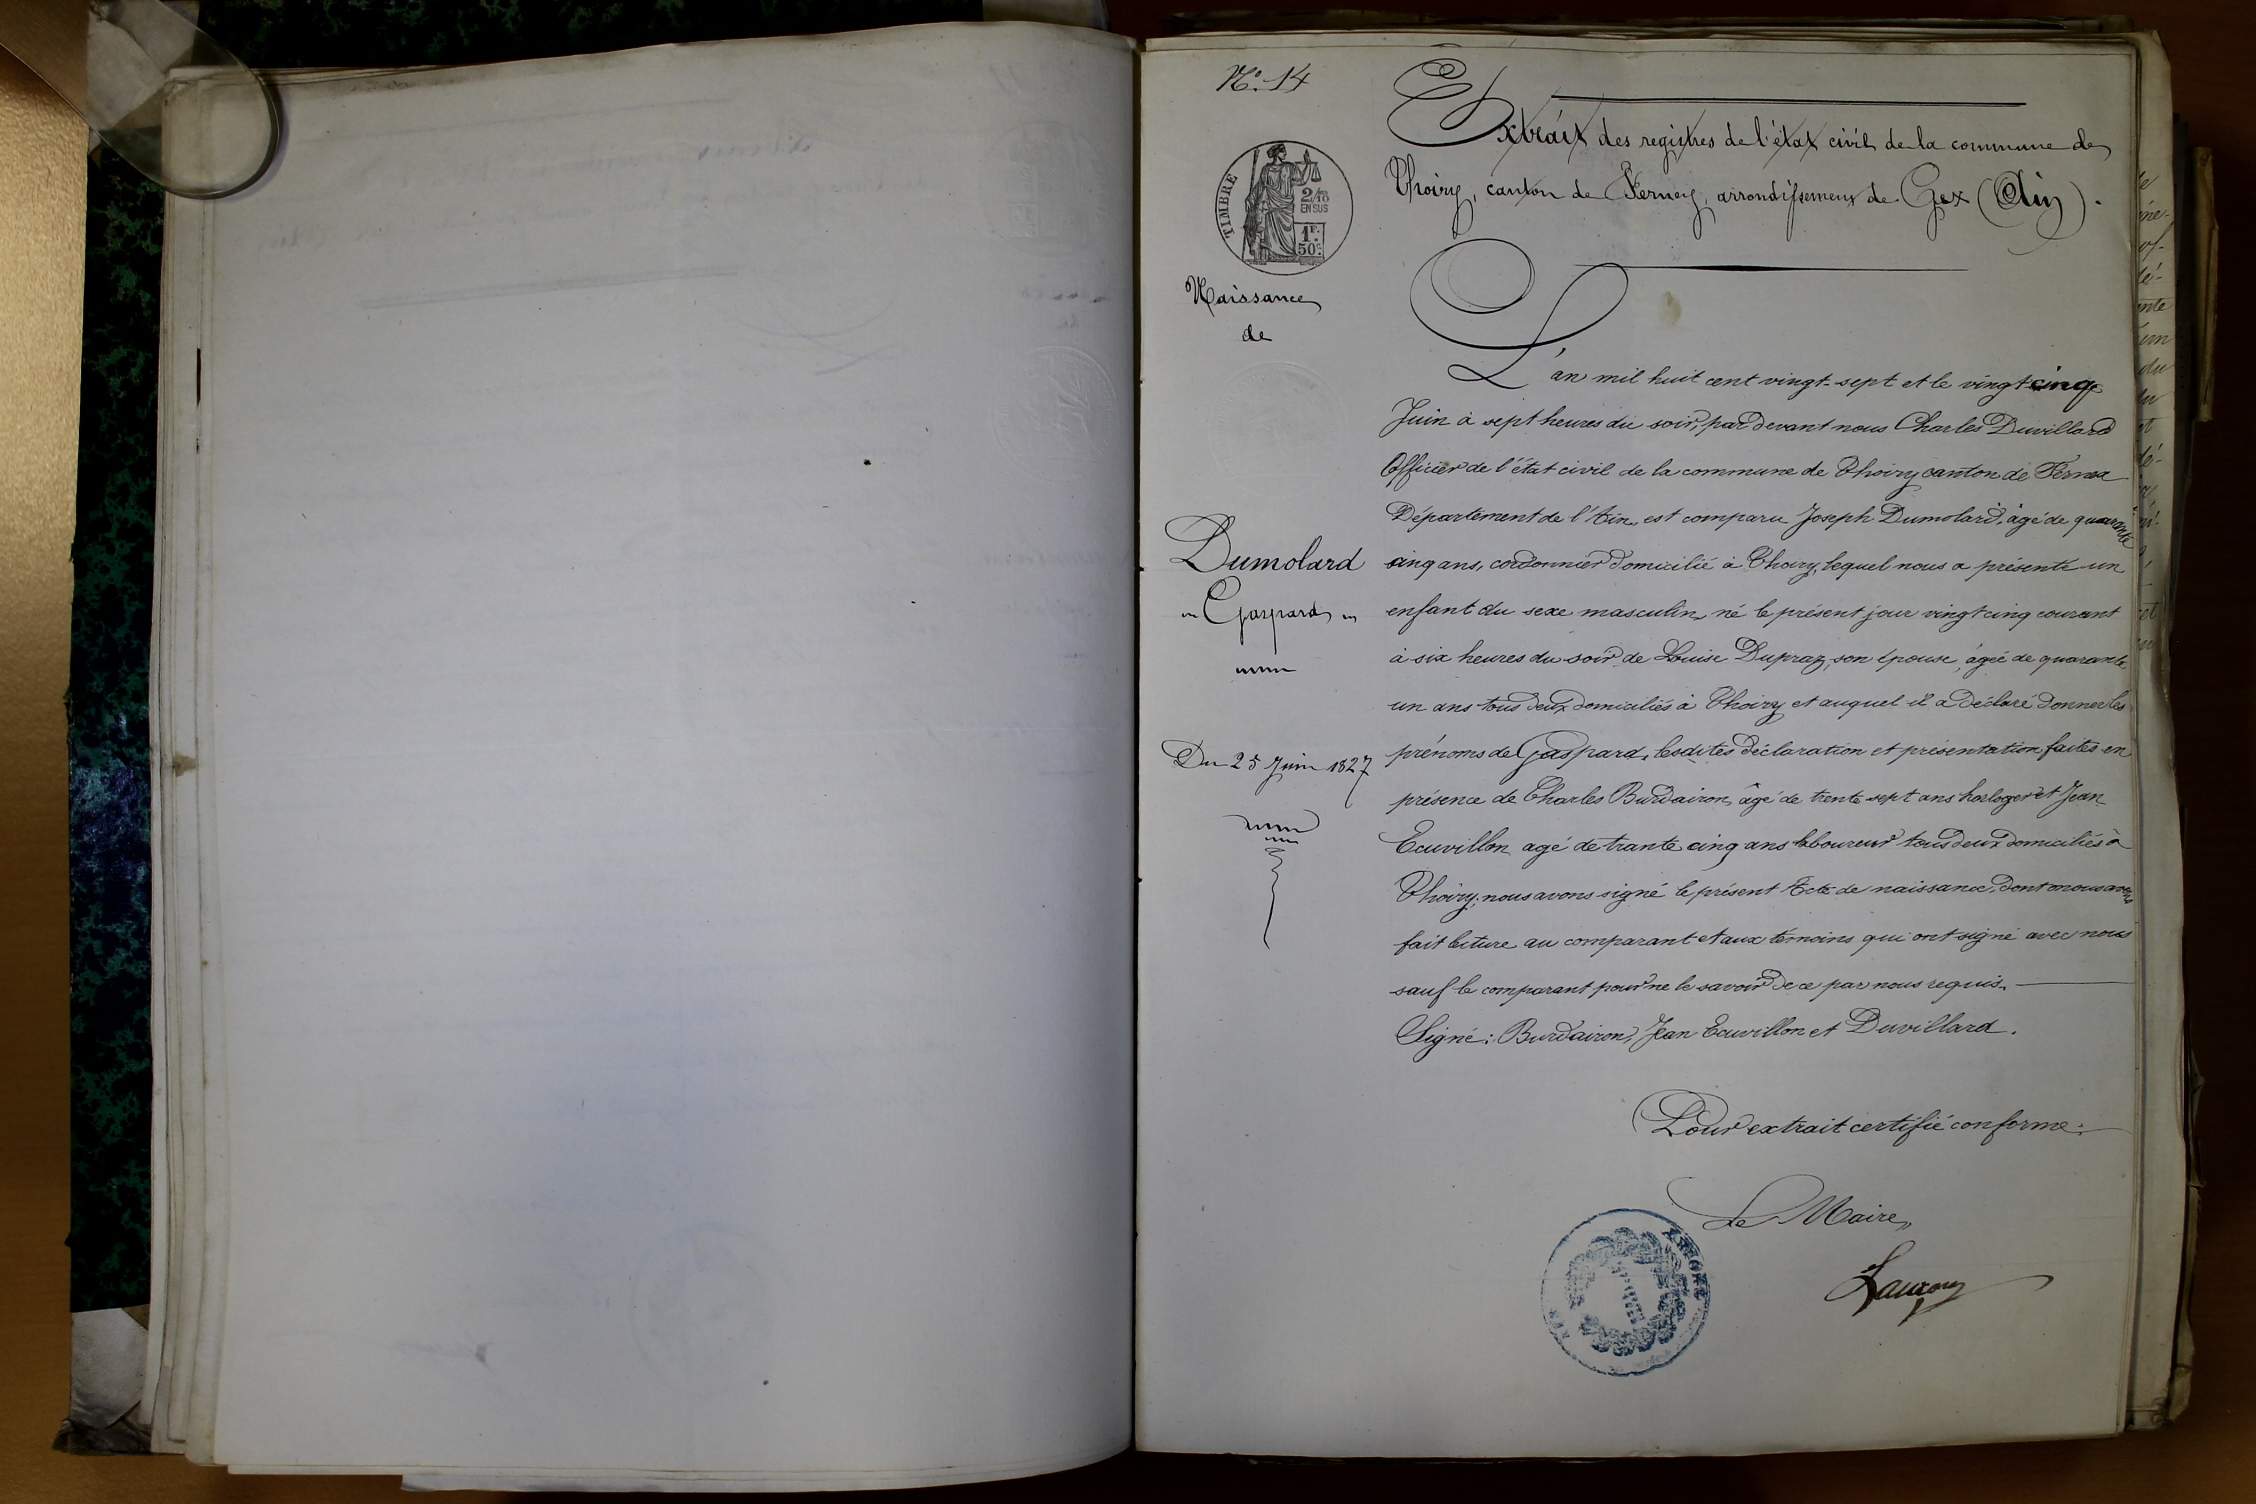 N.º 14
Extrait des registres de l'état civil de la commune de
Thoiry, canton de Ferney, arrondissement de Gex (Ain).
TIMBRE
2/10
EN SUS
1F.
50c.
Naissance
de
Dumolard
Gaspard
Du 25 Juin 1827
L'an mil huit cent vingt-sept et le vingt cinq
Juin à sept heures du soir, par devant nous Charles Duvillard
Officier de l'état civil de la commune de Thoiry canton de Fernex
Département de l'Ain, est comparu Joseph Dumolard, âgé de quarante
cinq ans, cordonnier domicilié à Thoiry, lequel nous a présenté un
enfant du sexe masculin né le présent jour vingt cinq courant
à six heures du soir de Louise Dupraz, son épouse, âgée de quarante
un ans tous deux domiciliés à Thoiry et auquel il a déclaré donner les
prénoms de Gaspard, lesdites déclaration et présentation faites en
présence de Charles Burdairon, âgé de trente sept ans horloger et Jean
Ecuvillon agé de trante cinq ans laboureur tous deux domiciliés à
Thoiry; nous avons signé le présent Acte de naissance, dont nous avons
fait lecture au comparant et aux témoins qui ont signé avec nous
sauf le comparant pour ne le savoir de ce par nous requis.
Signé: Burdairon, Jean Ecuvillon et Duvillard.
Pour extrait certifié conforme:
Le Maire,